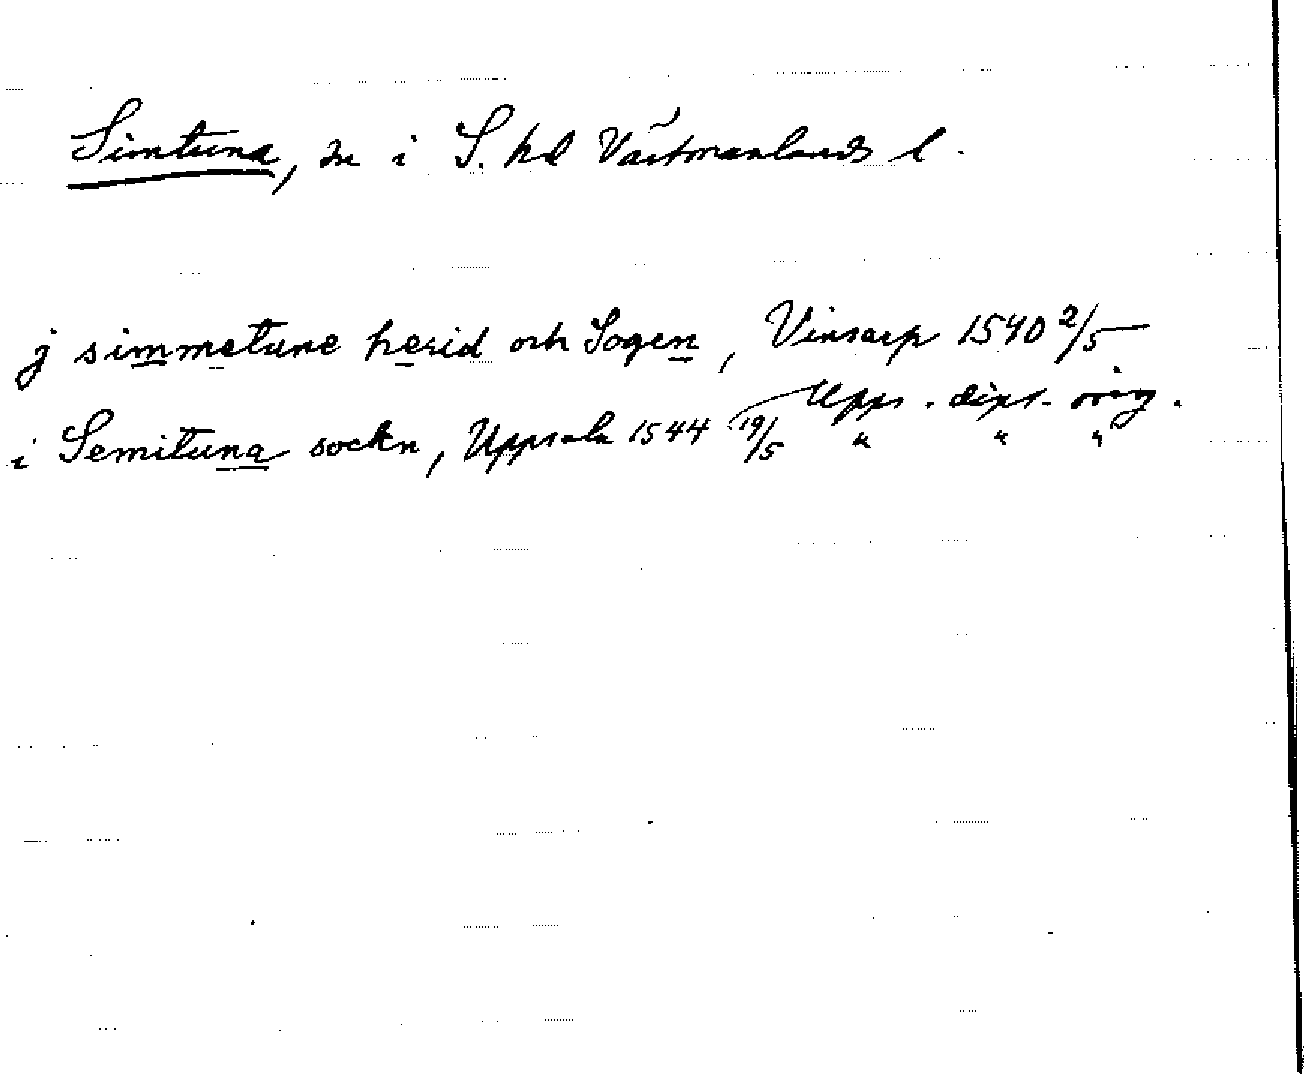 Simtuna, sn i S. hd Västmanlands l.
j simmetune herid och Sogen, Vinsarp 1540 2/5
Upps. dipl. orig.
i Semituna sockn, Uppsala 1544 19/5 " " "